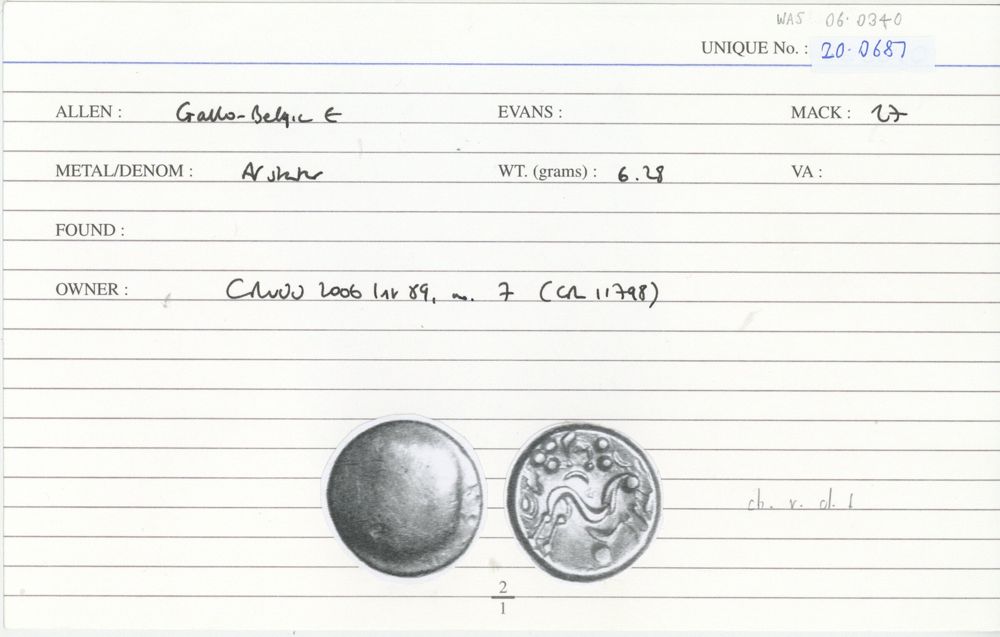 WAS 06.0340
UNIQUE No. : 20.0687
ALLEN : Gallo-Belgic E EVANS : MACK : 27
METAL/DENOM : AV stater WT. (grams) : 6.28 VA :
FOUND :
OWNER : 2006 no. 7 (CR 11798)
ch. v. d. 1
2
1